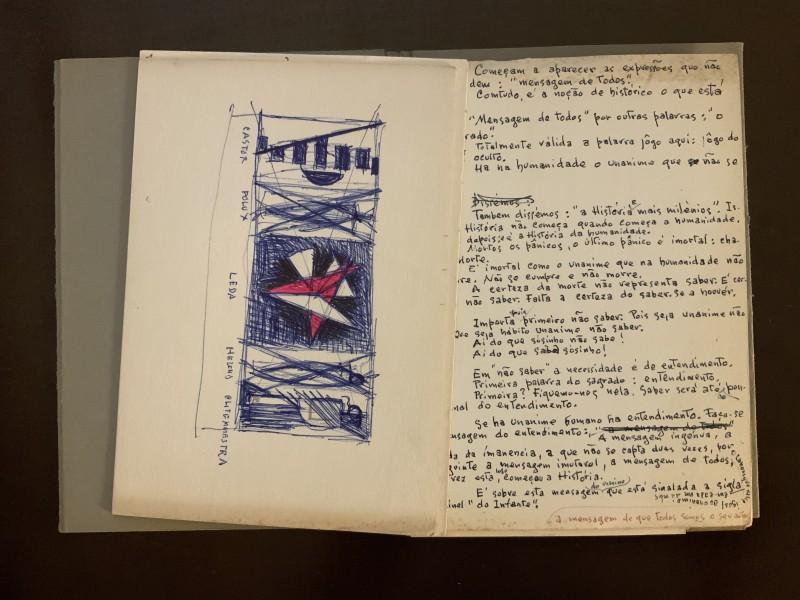 CASTOR POLUX
LEDA
HELENA CLITEMNESTRA
Começam a aparecer as expressões que não
dem: "mensagem de todos".
Comtudo, é a noção de histórico o que está
"Mensagem de todos" por outras palavras: "o
rado".
Totalmente válida a palavra jôgo aqui: jôgo do
oculto.
Ha na humanidade o unanime que não se
Dissémos:
Tambem dissémos: "a História é mais milénios". Is.
História não começa quando começa a humanidade.
depois: é a História da humanidade.
Mortos os pânicos, o último pânico é imortal: cha
dorte.
É imortal como o unanime que na humanidade não
re. Não se cumpre e não morre.
A certeza da morte não representa saber. É cer-
não saber. Falta a certeza do saber. Se a houver,
Importa pois primeiro não saber. Pois seja unanime não
Que seja hábito unanime não saber.
Ai do que sòsinho não sabe!
Ai do que sabe sòsinho!
Em "não saber" a necessidade é de entendimento.
Primeira palavra do sagrado: entendimento.
Primeira? Fiquemo-nos nela. Saber será até
nal do entendimento.
Se ha unanime humano ha entendimento. Faça-se
nsagem do entendimento: "a mensagem de todos"
A mensagem ingénua, a
da da imanencia, a que não se capta duas vezes, por
guinte a mensagem imutavel, a mensagem de todos,
vez esta, começou a História.
É sobre esta mensagem do unanime que está sinalada a sigla
inel "do Infante".
a mensagem de que todos somos o